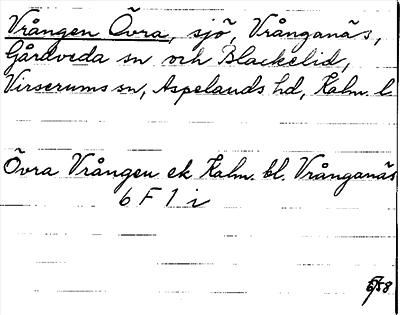 Vrången Övra, sjö, Vrånganäs,
Gårdveda sn och Blackelid,
Virserums sn, Aspelands hd, Kalm. l
Övra Vrången ek Kalm. bl. Vrånganäs
6 F 1 i